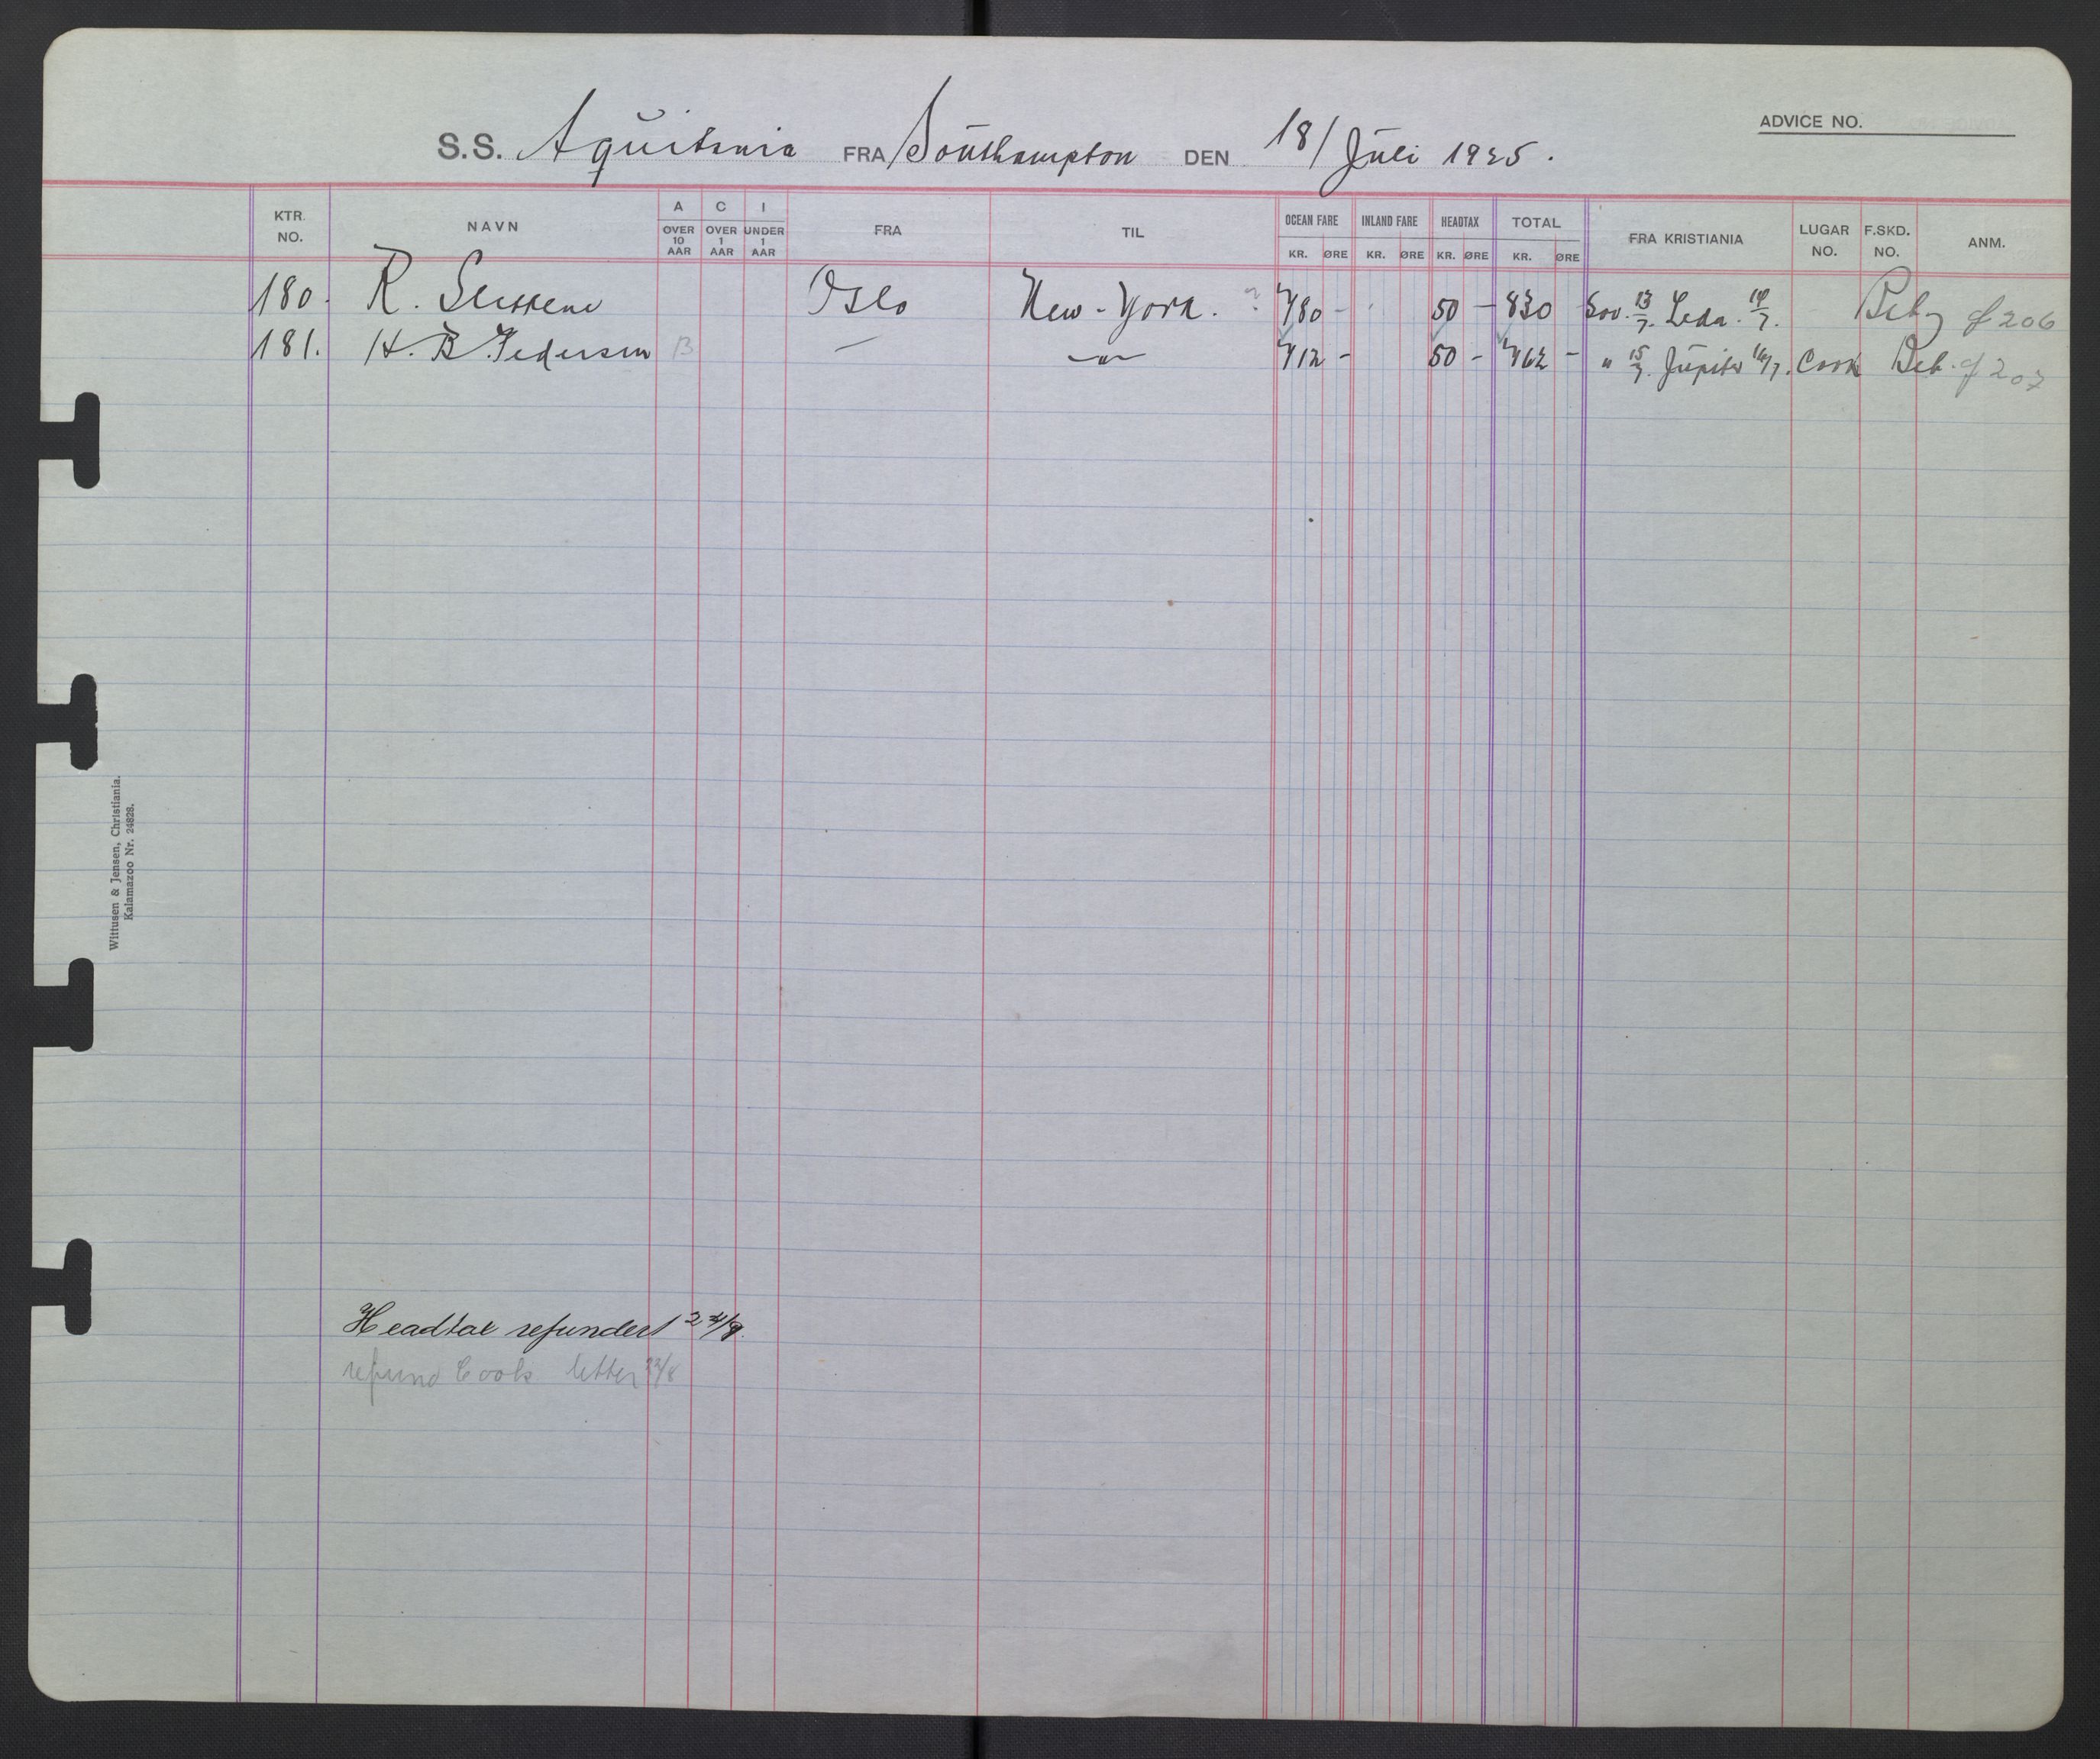 S.S. Aquitania FRA Southampton DEN 18/ Juli 1925.
ADVICE NO.
KTR. NO. NAVN A OVER 10 AAR C OVER 1 AAR I UNDER 1 AAR FRA TIL OCEAN FARE KR. ØRE INLAND FARE KR. ØRE HEADTAX KR. ØRE TOTAL KR. ØRE FRA KRISTIANIA LUGAR NO. F.SKD. NO. ANM.
180. R. Oslo New-York. ? 780 - 50 - 830 13/7. Leda. 14/7. 206
181. H. B. Pedersen B — —"— 712 - 50 - 762 - " 15/7. Jupiter 16/7. Cook 207
Wittusen & Jensen, Christiania.
Kalamazoo Nr. 24828.
Headtax refundert
refund Cook letter